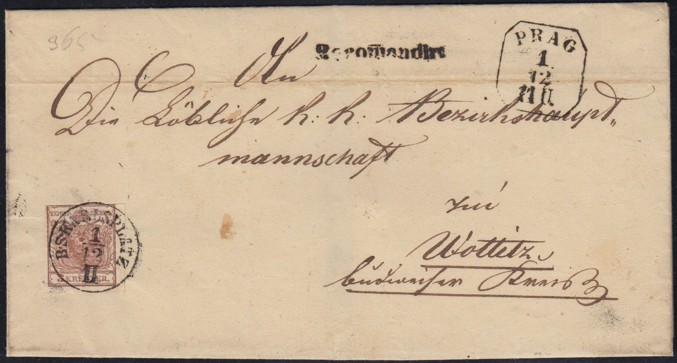 965
Recomandirt
PRAG
1
12
11 II
An
Die Löbliche k: k: Bezirkshaupt„
mannschaft
zu
Wottitz
budweiser Kreis
1
12
II
KREUZER.